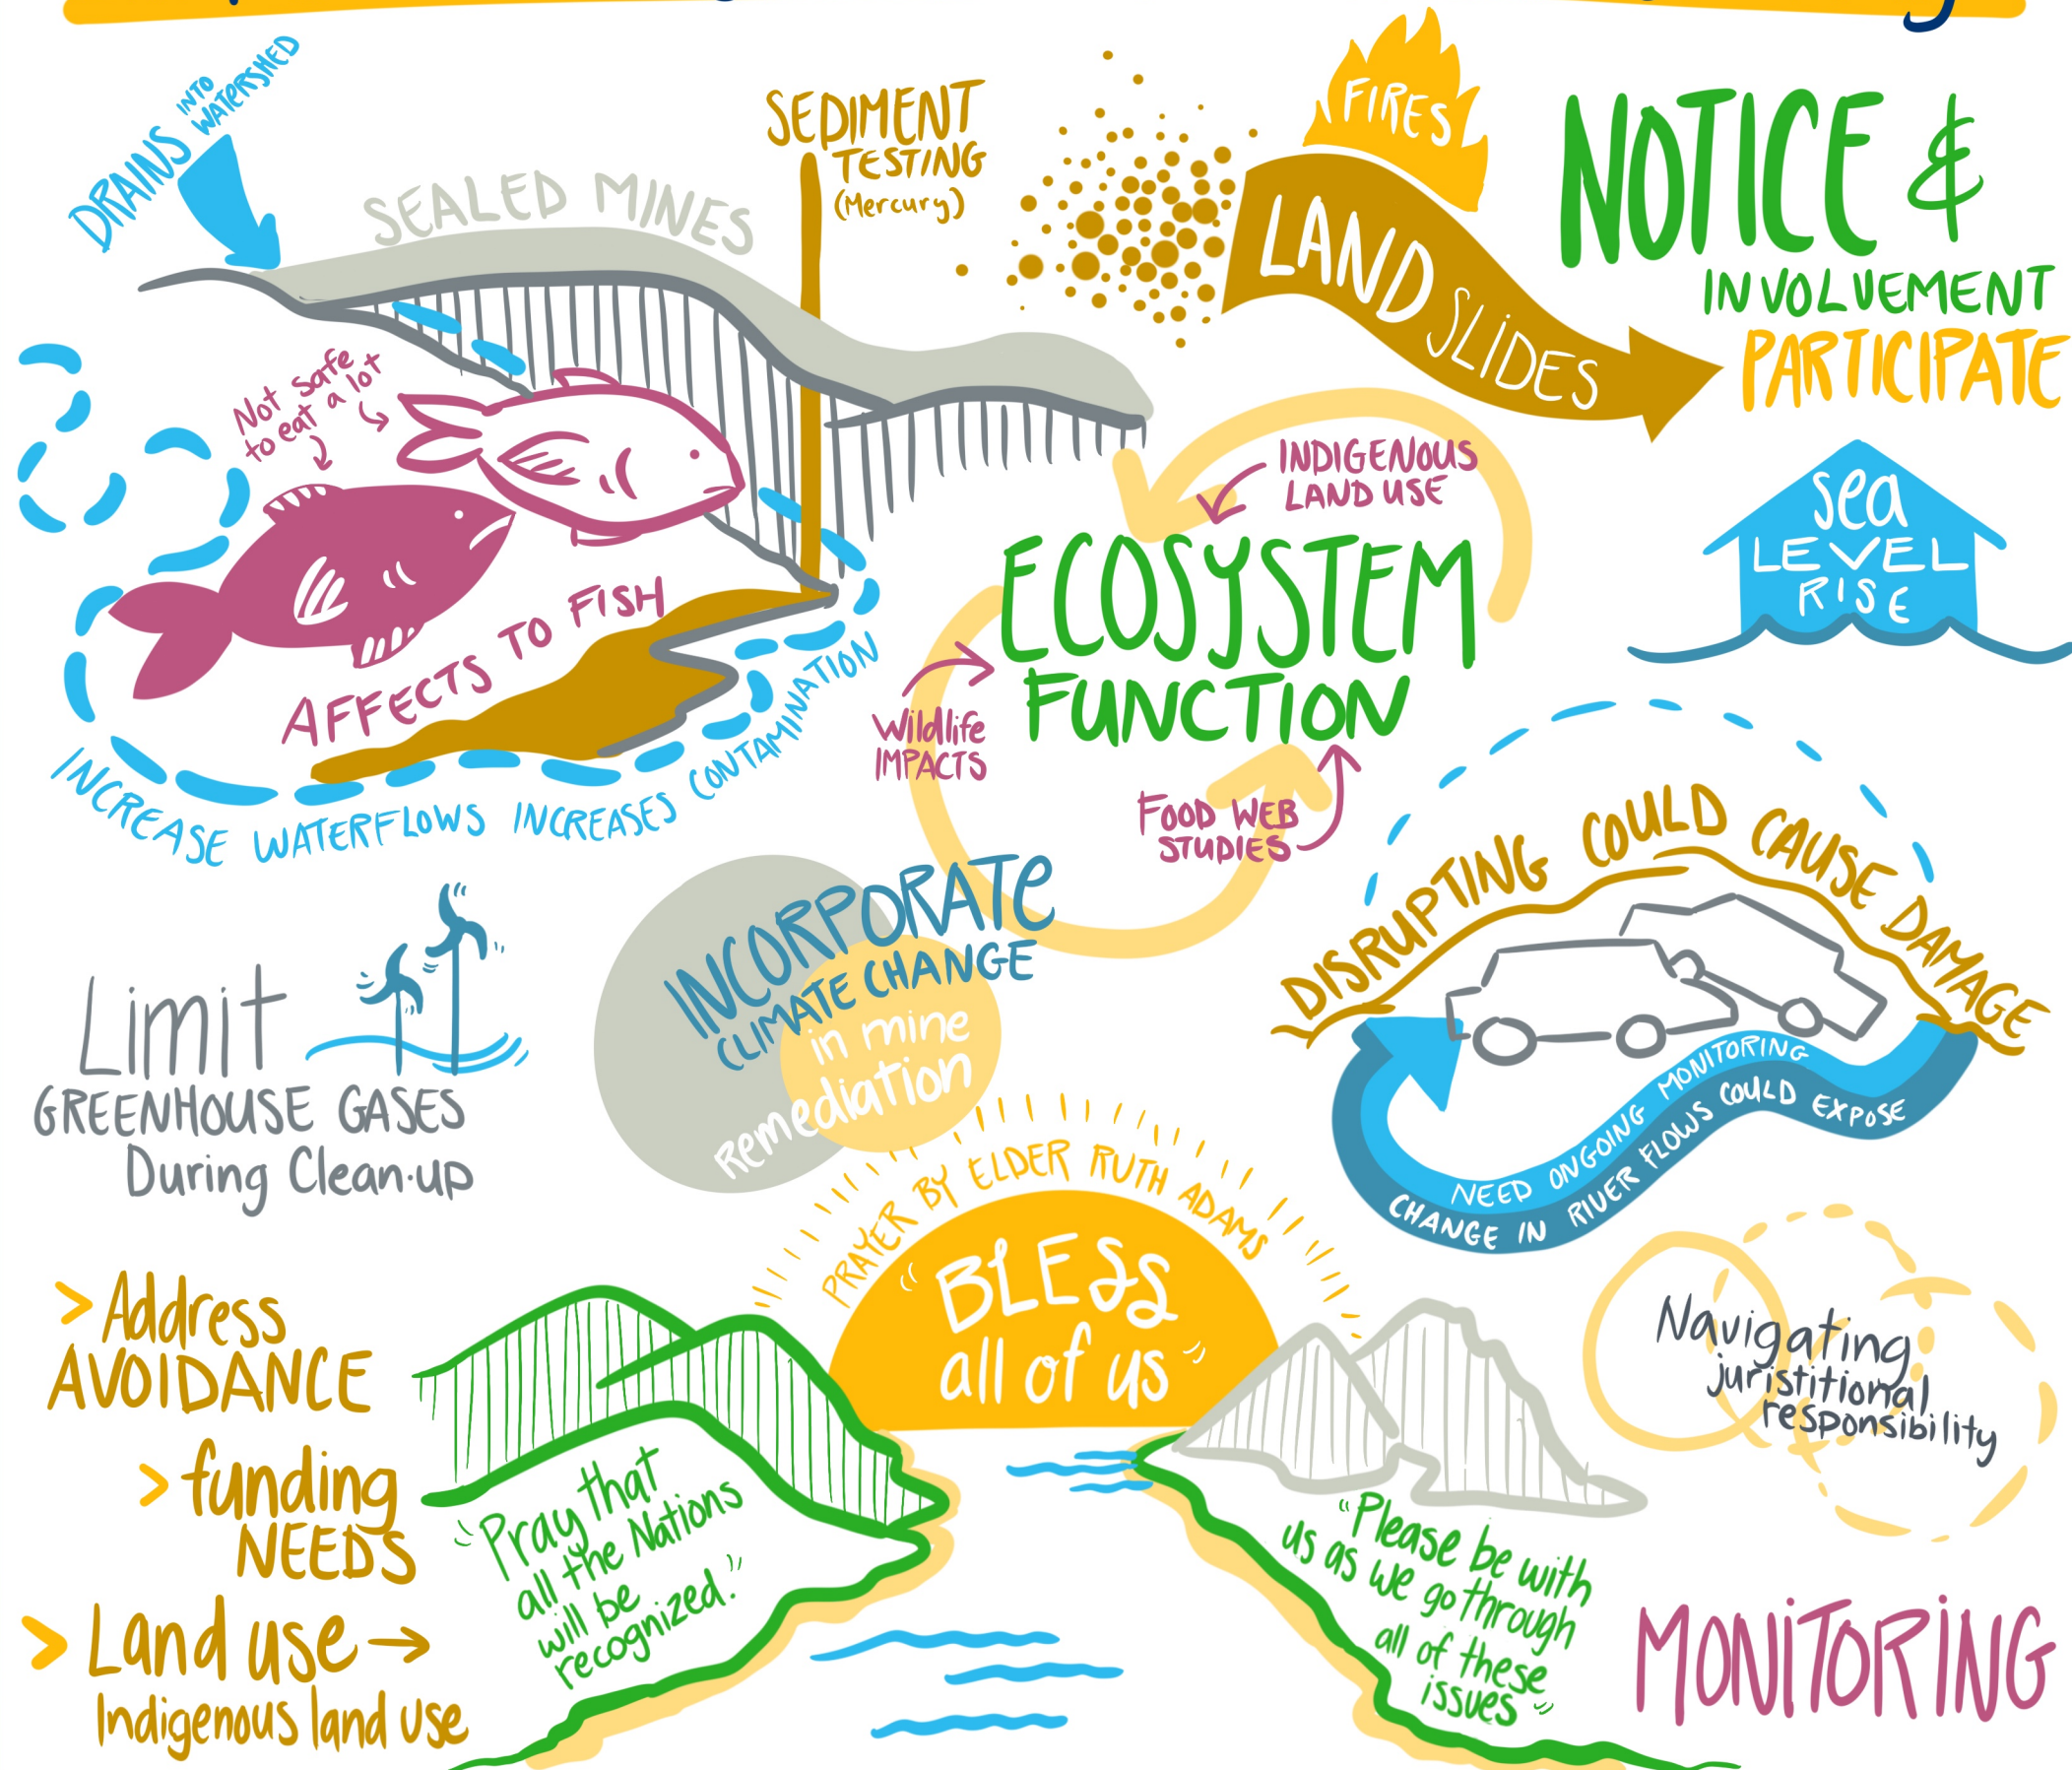 DRAINS INTO
WATERSHED
SEALED MINES
SEDIMENT
TESTING
(Mercury)
FIRES
LANDSLIDES
NOTICE &
INVOLVEMENT
PARTICIPATE
Not safe
to eat a lot
AFFECTS TO FISH
INCREASE WATERFLOWS INCREASES CONTAMINATION
INDIGENOUS
LAND USE
ECOSYSTEM
FUNCTION
Wildlife
IMPACTS
FOOD WEB
STUDIES
Sea
LEVEL
RISE
DISRUPTING COULD CAUSE DAMAGE
NEED ONGOING MONITORING
CHANGE IN RIVER FLOWS COULD EXPOSE
Limit
GREENHOUSE GASES
During Clean-up
INCORPORATE
CLIMATE CHANGE
in mine
Remediation
PRAYER BY ELDER RUTH ADAMS
"BLESS
all of us"
> Address
AVOIDANCE
> funding
NEEDS
> Land use →
Indigenous land use
"Pray that
all the Nations
will be
recognized."
"Please be with
us as we go through
all of these
issues"
Navigating
juristitional
responsibility
MONITORING